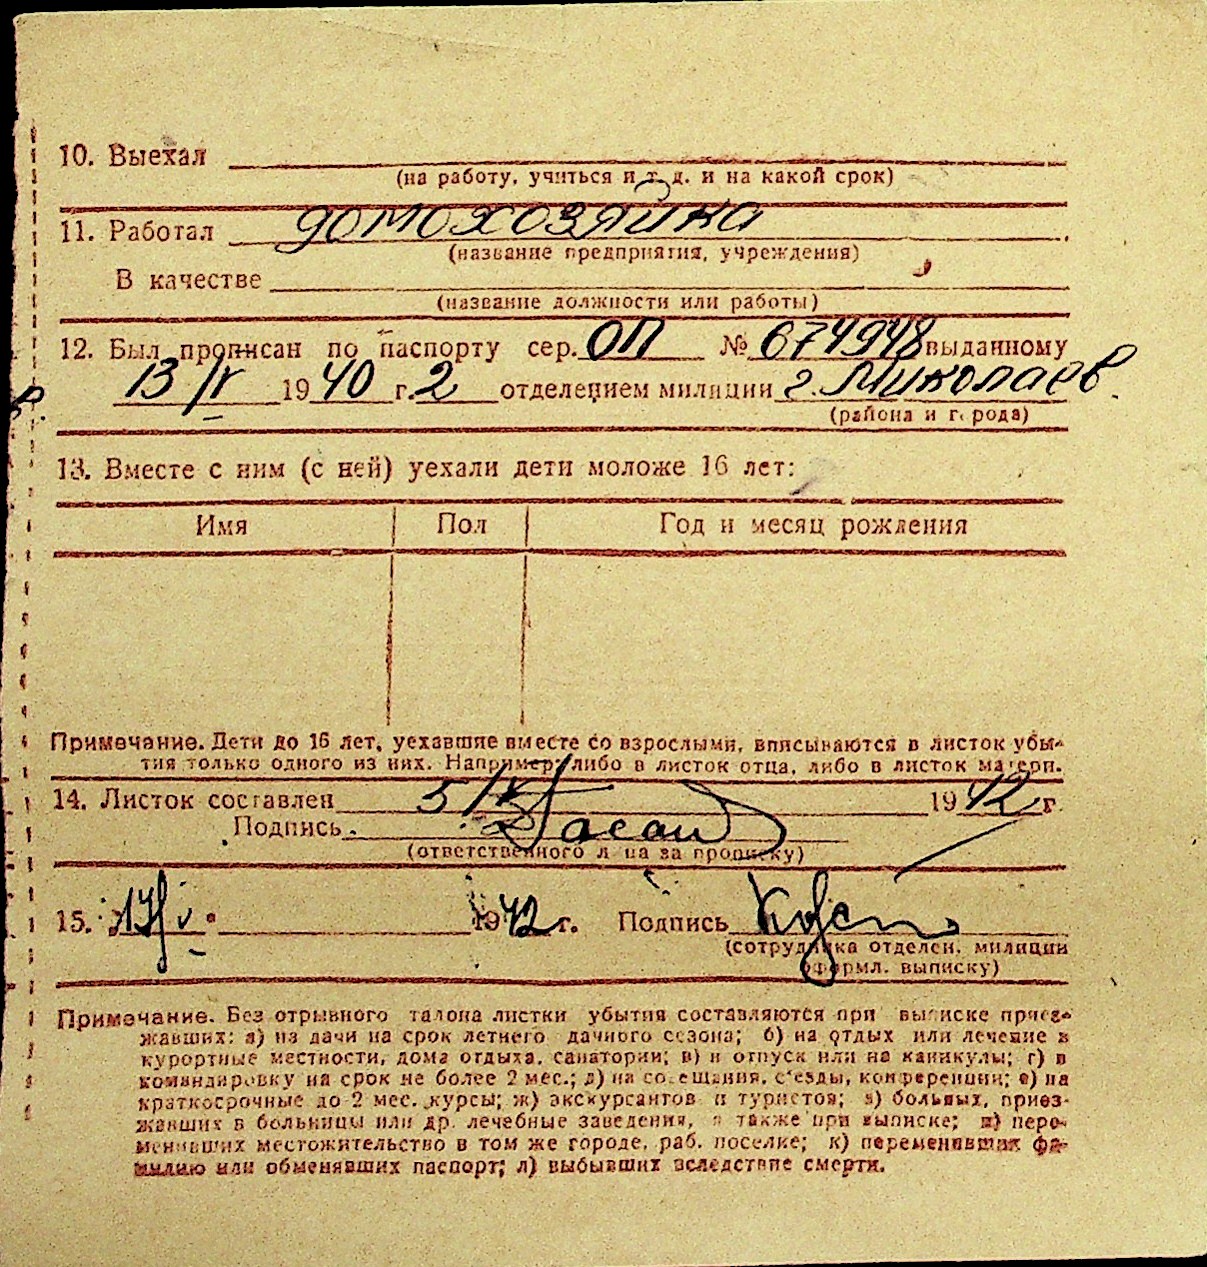 10. Выехал
(на работу, учиться и т. д. и на какой срок)
11. Работал домохозяйка
(название предприятия, учреждения)
В качестве
(название должности или работы)
12. Был прописан по паспорту сер. ОП № 674948 выданному
13/IV 1940 г. 2 отделением милиции г. Николаев
(района и города)
13. Вместе с ним (с ней) уехали дети моложе 16 лет:
Имя Пол Год и месяц рождения
Примечание. Дети до 16 лет, уехавшие вместе со взрослыми, вписываются в листок убы-
тия только одного из них. Например: либо в листок отца, либо в листок матери.
14. Листок составлен 5/ 1942 г.
Подпись
(ответственного лица за прописку)
15. 1942 г. Подпись
(сотрудника отделен. милиции
оформл. выписку)
Примечание. Без отрывного талона листки убытия составляются при выписке приез-
жавших: а) на дачи на срок летнего дачного сезона; б) на отдых или лечение в
курортные местности, дома отдыха, санатории; в) в отпуск или на каникулы; г) в
командировку на срок не более 2 мес.; д) на совещания, съезды, конференции; е) на
краткосрочные до 2 мес. курсы; ж) экскурсантов и туристов; з) больных, приез-
жавших в больницы или др. лечебные заведения, а также при выписке; и) пере-
менивших местожительство в том же городе, раб. поселке; к) переменивших фа-
милию или обменявших паспорт; л) выбывших вследствие смерти.